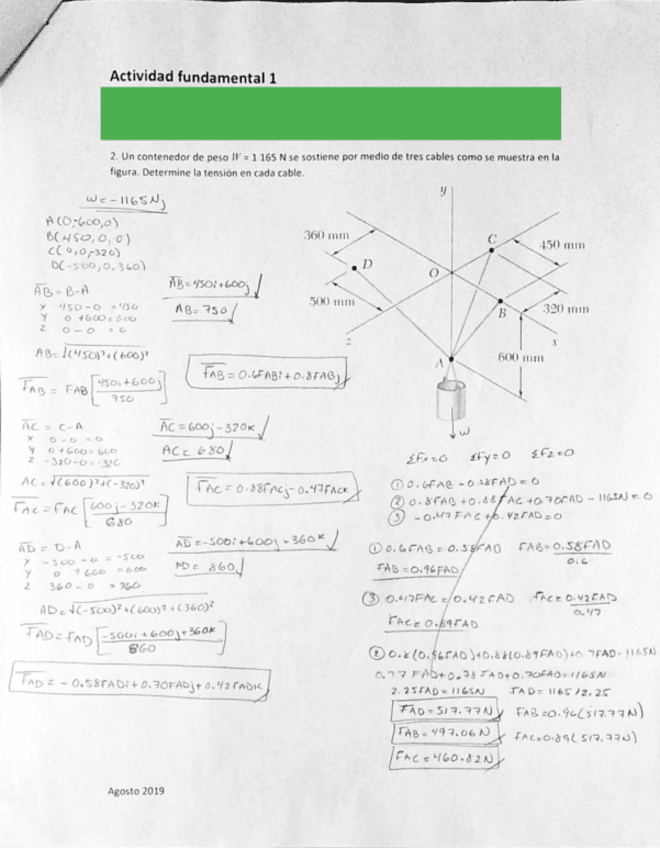 Actividad fundamental 1
2. Un contenedor de peso W = 1 165 N se sostiene por medio de tres cables como se muestra en la
figura. Determine la tensión en cada cable.
W = -1165Nj
A(0,-600,0)
B(450,0,0)
C(0,0,-320)
D(-500,0,360)
AB = B-A
x 450-0 = 450
y 0+600 = 600
z 0-0 = 0
AB=450i+600j
AB= 750
AB= √(450)²+(600)²
FAB = FAB [450i+600j / 750]
FAB = 0.6FABi+0.8FABj
AC = C-A
x 0-0 = 0
y 0+600=600
z -320-0=-320
AC=600j-320K
AC= 680
AC= √(600)²+(-320)²
FAC = FAC [600j-320K / 680]
FAC = 0.88FACj-0.47FACK
AD = D-A
x -500-0 = -500
y 0+600 = 600
z 360-0 = 360
AD=-500i+600j+360K
AD= 860
AD=√(-500)²+(600)²+(360)²
FAD = FAD [-500i+600j+360K / 860]
FAD = -0.58FADi+0.70FADj+0.42FADK
y
360 mm
C
450 mm
D
O
500 mm
B
320 mm
z
x
A
600 mm
W
ΣFx=0 ΣFy=0 ΣFz=0
① 0.6FAB-0.58FAD=0
② 0.8FAB+0.88FAC+0.70FAD-1165N=0
③ -0.47FAC+0.42FAD=0
① 0.6FAB=0.58FAD FAB=0.58FAD / 0.6
FAB=0.96FAD
③ 0.47FAC=0.42FAD FAC=0.42FAD / 0.47
FAC=0.89FAD
② 0.8(0.96FAD)+0.88(0.89FAD)+0.7FAD=1165N
0.77 FAD+0.78FAD+0.70FAD=1165N
2.25FAD=1165N FAD=1165/2.25
FAD=517.77N FAB=0.96(517.77N)
FAB=497.06N FAC=0.89(517.77N)
FAC=460.82N
Agosto 2019